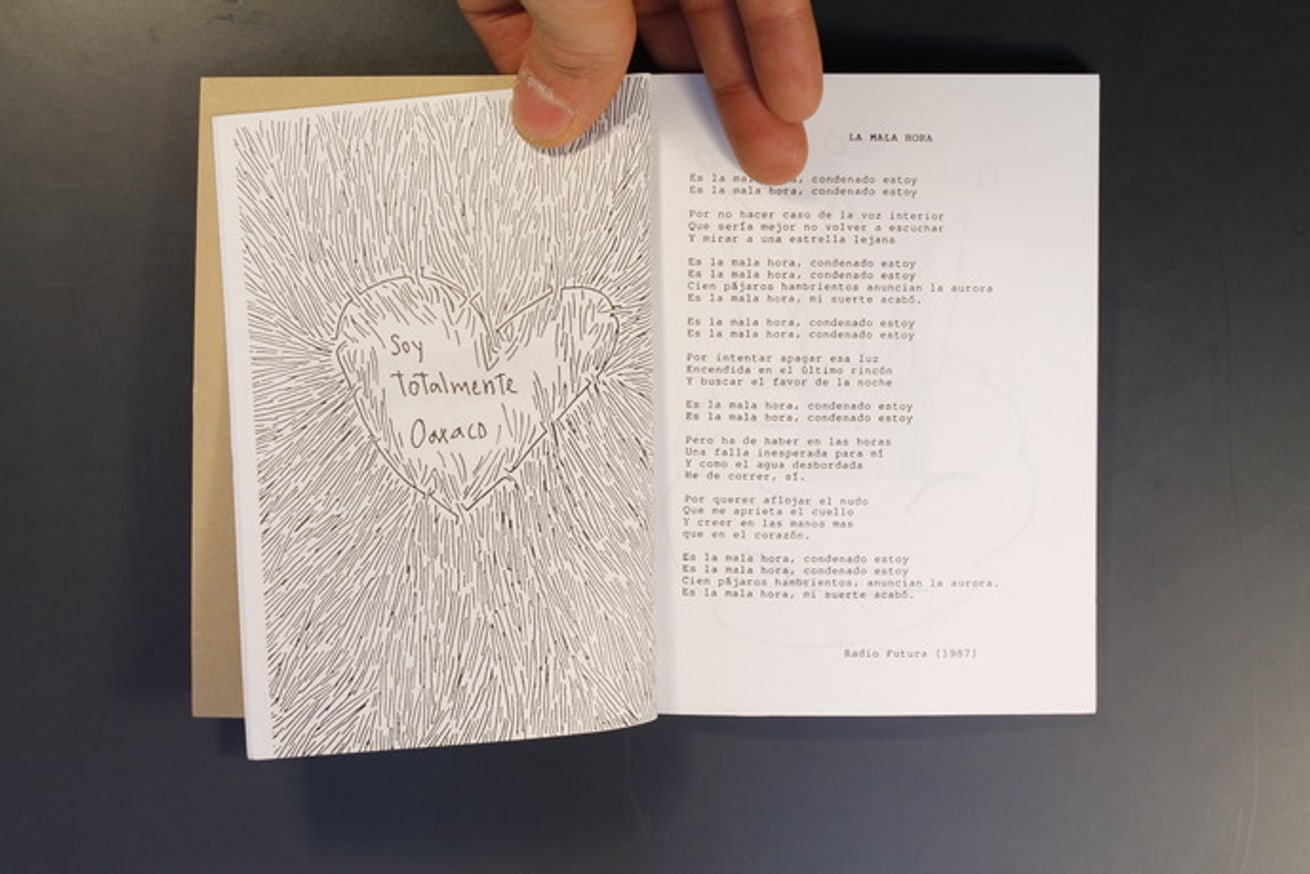 Soy
totalmente
Oaxaco
LA MALA HORA
Es la condenado estoy
Es la mala hora, condenado estoy
Por no hacer caso de la voz interior
Que sería mejor no volver a escuchar
Y mirar a una estrella lejana
Es la mala hora, condenado estoy
Es la mala hora, condenado estoy
Cien pájaros hambrientos anuncian la aurora
Es la mala hora, mi suerte acabó.
Es la mala hora, condenado estoy
Es la mala hora, condenado estoy
Por intentar apagar esa luz
Encendida en el último rincón
Y buscar el favor de la noche
Es la mala hora, condenado estoy
Es la mala hora, condenado estoy
Pero ha de haber en las horas
Una falla inesperada para mí
Y como el agua desbordada
He de correr, sí.
Por querer aflojar el nudo
Que me aprieta el cuello
Y creer en las manos mas
que en el corazón.
Es la mala hora, condenado estoy
Es la mala hora, condenado estoy
Cien pájaros hambrientos, anuncian la aurora.
Es la mala hora, mi suerte acabó.
Radio Futura (1987)